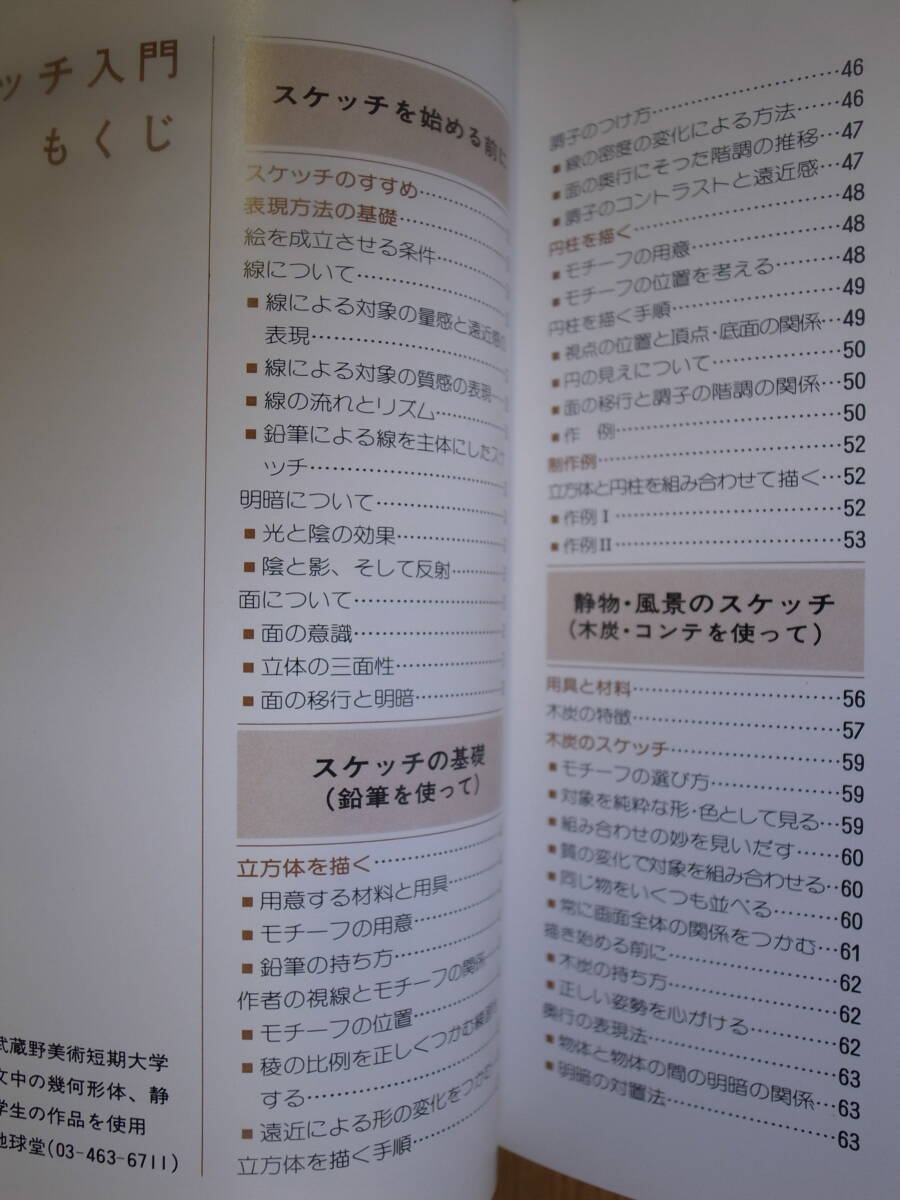 ッチ入門
もくじ
武蔵野美術短期大学
文中の幾何形体、静
学生の作品を使用
地球堂(03-463-6711)
スケッチを始める前に
スケッチのすすめ
表現方法の基礎
絵を成立させる条件
線について
■線による対象の量感と遠近感の
表現
■線による対象の質感の表現
■線の流れとリズム
■鉛筆による線を主体にしたスケ
ッチ
明暗について
■光と陰の効果
■陰と影、そして反射
面について
■面の意識
■立体の三面性
■面の移行と明暗
スケッチの基礎
(鉛筆を使って)
立方体を描く
■用意する材料と用具
■モチーフの用意
■鉛筆の持ち方
作者の視線とモチーフの関係
■モチーフの位置
■稜の比例を正しくつかむ
する
■遠近による形の変化をつかむ
立方体を描く手順
調子のつけ方…46
■線の密度の変化による方法…46
■面の奥行にそった階調の推移…47
■調子のコントラストと遠近感…47
円柱を描く…48
■モチーフの用意…48
■モチーフの位置を考える…48
円柱を描く手順…49
■視点の位置と頂点・底面の関係…49
■円の見えについて…50
■面の移行と調子の階調の関係…50
■作　例…50
制作例…52
立方体と円柱を組み合わせて描く…52
■作例Ⅰ…52
■作例Ⅱ…53
静物・風景のスケッチ
(木炭・コンテを使って)
用具と材料…56
木炭の特徴…57
木炭のスケッチ…59
■モチーフの選び方…59
■対象を純粋な形・色として見る…59
■組み合わせの妙を見いだす…60
■質の変化で対象を組み合わせる…60
■同じ物をいくつも並べる…60
■常に画面全体の関係をつかむ…61
描き始める前に…62
■木炭の持ち方…62
■正しい姿勢を心がける…62
奥行の表現法…63
■物体と物体の間の明暗の関係…63
■明暗の対置法…63